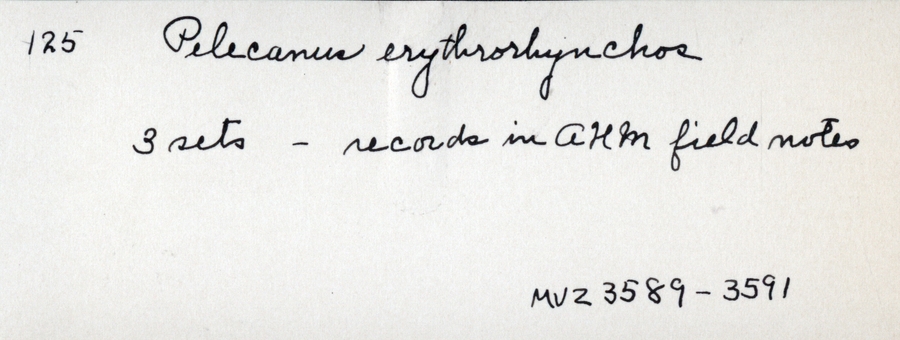 125 Pelecanus erythrorhynchos
3 sets - records in AHM field notes
MVZ 3589 - 3591